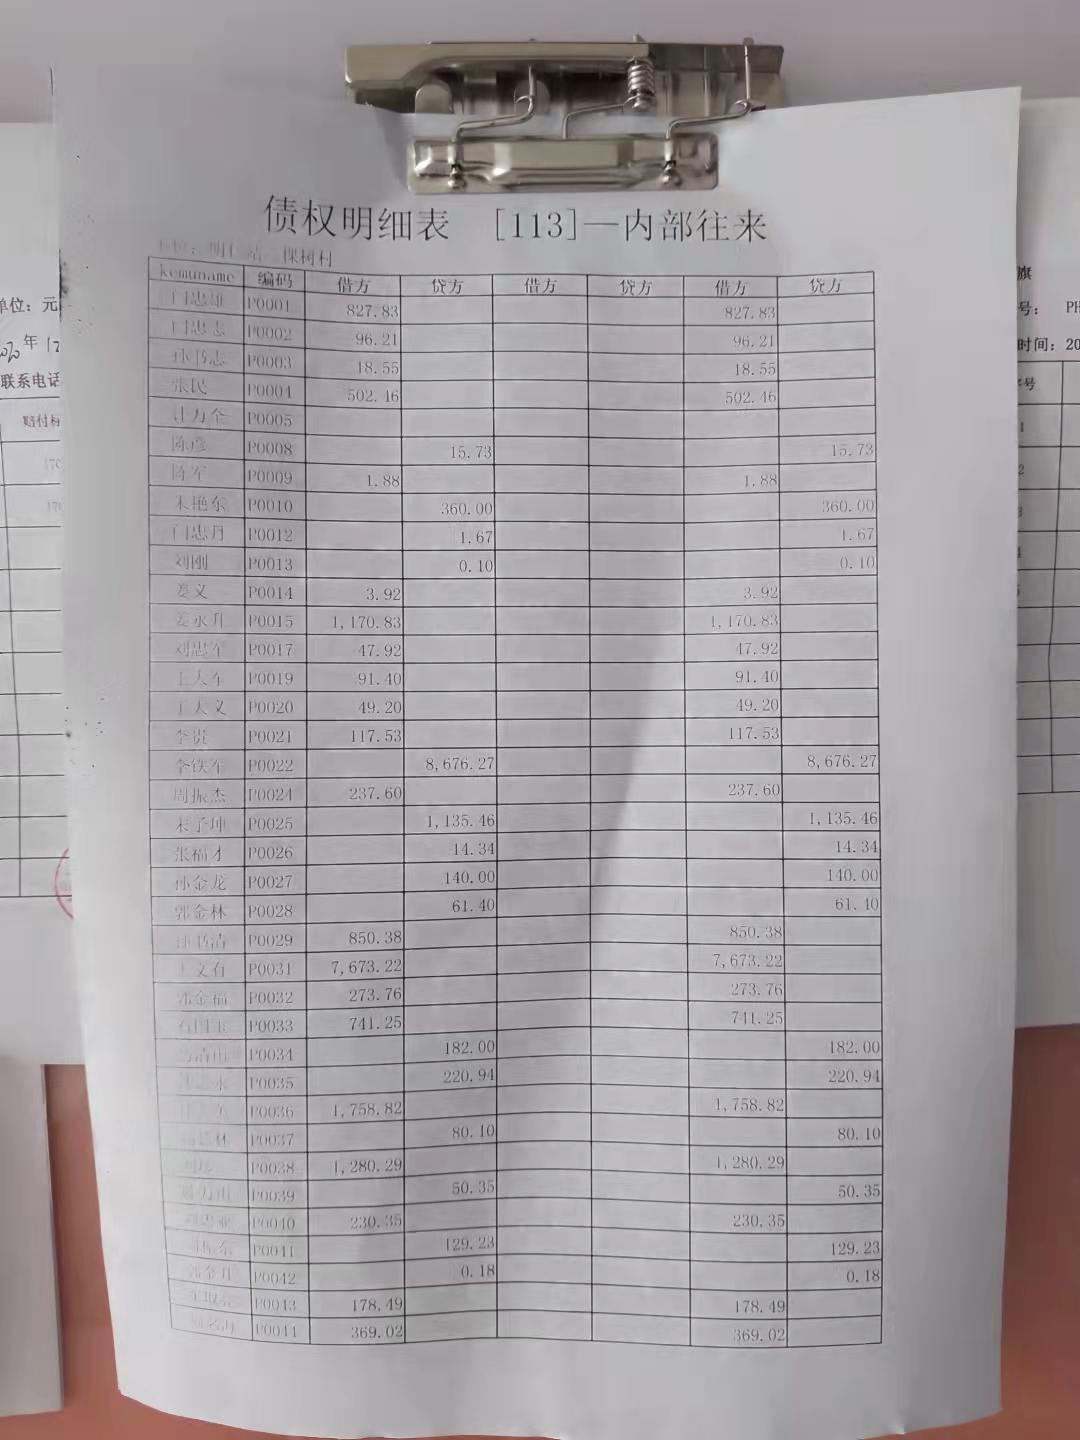 债权明细表 [113]—内部往来
棵树村
kemuname 编码 借方 贷方 借方 贷方 借方 贷方
门忠雄 P0001 827.83 827.83
门忠志 P0002 96.21 96.21
孙书志 P0003 18.55 18.55
张民 P0004 502.46 502.46
P0005
陈彦 P0008 15.73 15.73
陈军 P0009 1.88 1.88
朱艳东 P0010 360.00 360.00
门忠丹 P0012 1.67 1.67
刘刚 P0013 0.10 0.10
姜义 P0014 3.92 3.92
姜永升 P0015 1,170.83 1,170.83
刘忠军 P0017 47.92 47.92
P0019 91.40 91.40
P0020 49.20 49.20
李贵 P0021 117.53 117.53
李铁军 P0022 8,676.27 8,676.27
周振杰 P0024 237.60 237.60
P0025 1,135.46 1,135.46
张福才 P0026 14.34 14.34
孙金龙 P0027 140.00 140.00
郭金林 P0028 61.40 61.40
P0029 850.38 850.38
P0031 7,673.22 7,673.22
郭金福 P0032 273.76 273.76
P0033 741.25 741.25
P0034 182.00 182.00
P0035 220.94 220.94
P0036 1,758.82 1,758.82
P0037 80.10 80.10
P0038 1,280.29 1,280.29
P0039 50.35 50.35
P0040 230.35 230.35
P0041 129.23 129.23
P0042 0.18 0.18
P0043 178.49 178.49
P0044 369.02 369.02
单位：元
年
联系电话
赔付标
旗
号： PH
时间：20